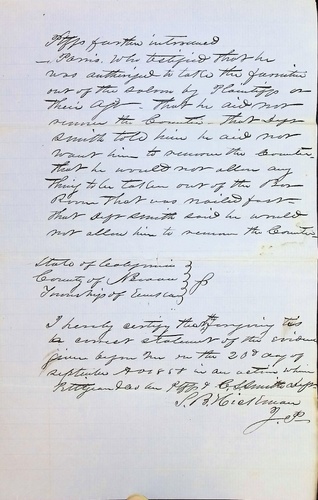 Ptffs further introduced
Parris. Who testified that he
was authorized to take the furniture
out of the saloon by Plaintiffs or
their agt. that he did not
remove the Counter. that Deft
Smith told him he did not
want him to remove the Counter
that he would not allow any
thing to be taken out of the Bar
Room that was nailed fast
that Deft Smith said he would
not allow him to remove the Counter
State of California
County of
Township of
I hereby certify that the foregoing is
a correct statement of the evidence
given before me on the 20th day of
September A D in an action when
Ptffs & C. Smith Deft
S. B. Hickman
J. P.